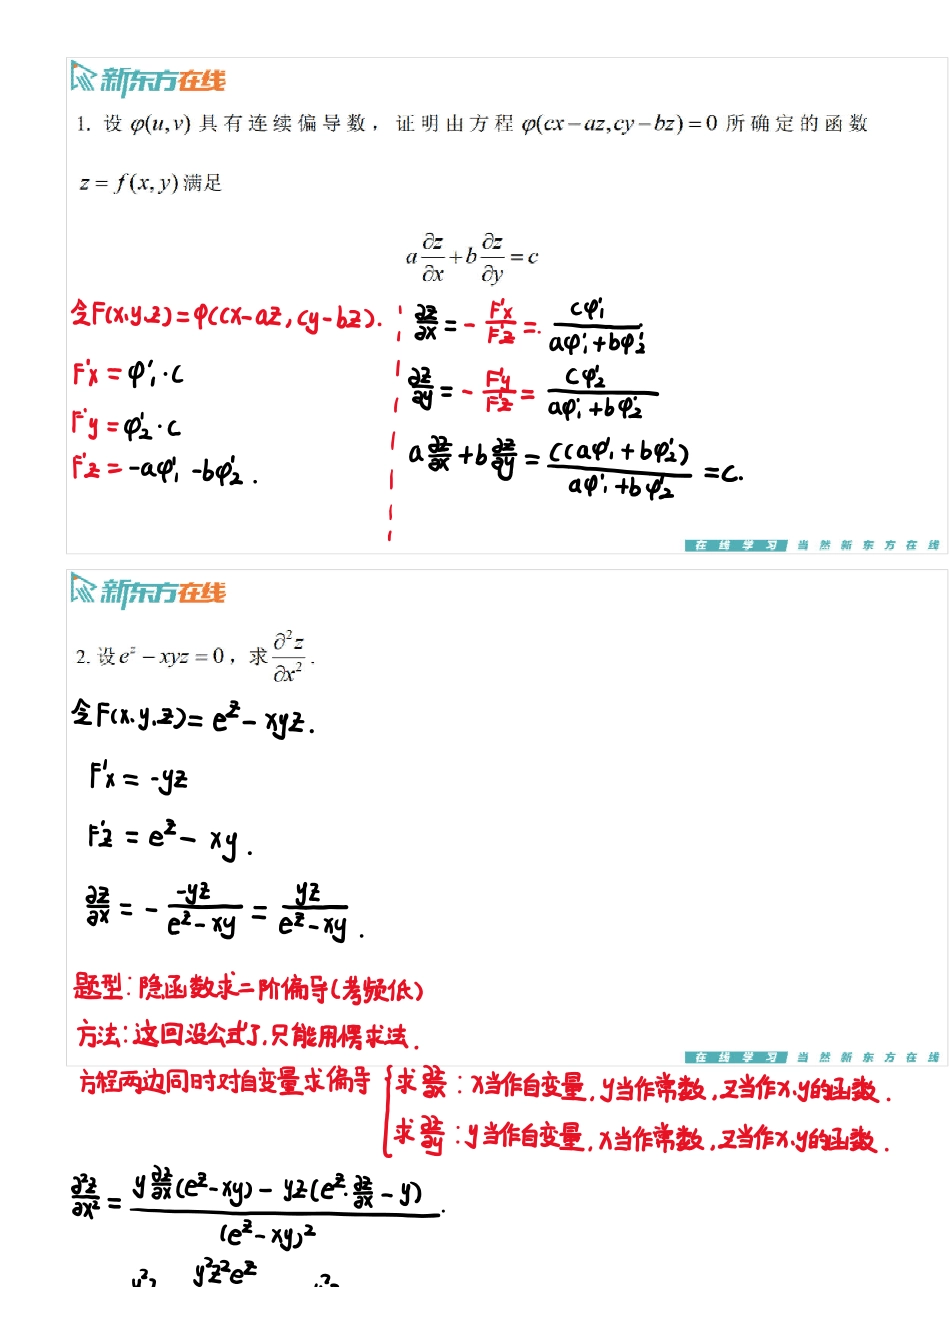 新东方在线
1. 设 φ(u,v) 具有连续偏导数，证明由方程 φ(cx−az,cy−bz)=0 所确定的函数
z = f(x,y) 满足
a ∂z/∂x + b ∂z/∂y = c
令F(x.y.z)=φ(cx-az, cy-bz).
F'x = φ'₁·c
F'y = φ'₂·c
F'z = -aφ'₁ -bφ'₂.
∂z/∂x = - F'x/F'z = cφ'₁/(aφ'₁+bφ'₂)
∂z/∂y = - F'y/F'z = cφ'₂/(aφ'₁+bφ'₂)
a ∂z/∂x + b ∂z/∂y = c(aφ'₁+bφ'₂)/(aφ'₁+bφ'₂) = c.
在线学习 当然新东方在线
新东方在线
2. 设 e^z − xyz = 0，求 ∂²z/∂x².
令F(x.y.z)= e^z - xyz.
F'x = -yz
F'z = e^z - xy.
∂z/∂x = - -yz/(e^z-xy) = yz/(e^z-xy).
题型: 隐函数求二阶偏导(考频低)
方法: 这回没公式了,只能用楞求法.
在线学习 当然新东方在线
方程两边同时对自变量求偏导 { 求 ∂z/∂x : x当作自变量, y当作常数, z当作x.y的函数.
求 ∂z/∂y : y当作自变量, x当作常数, z当作x.y的函数.
∂²z/∂x² = (y ∂z/∂x (e^z-xy) - yz(e^z·∂z/∂x - y))/(e^z-xy)².
y²z²e^z